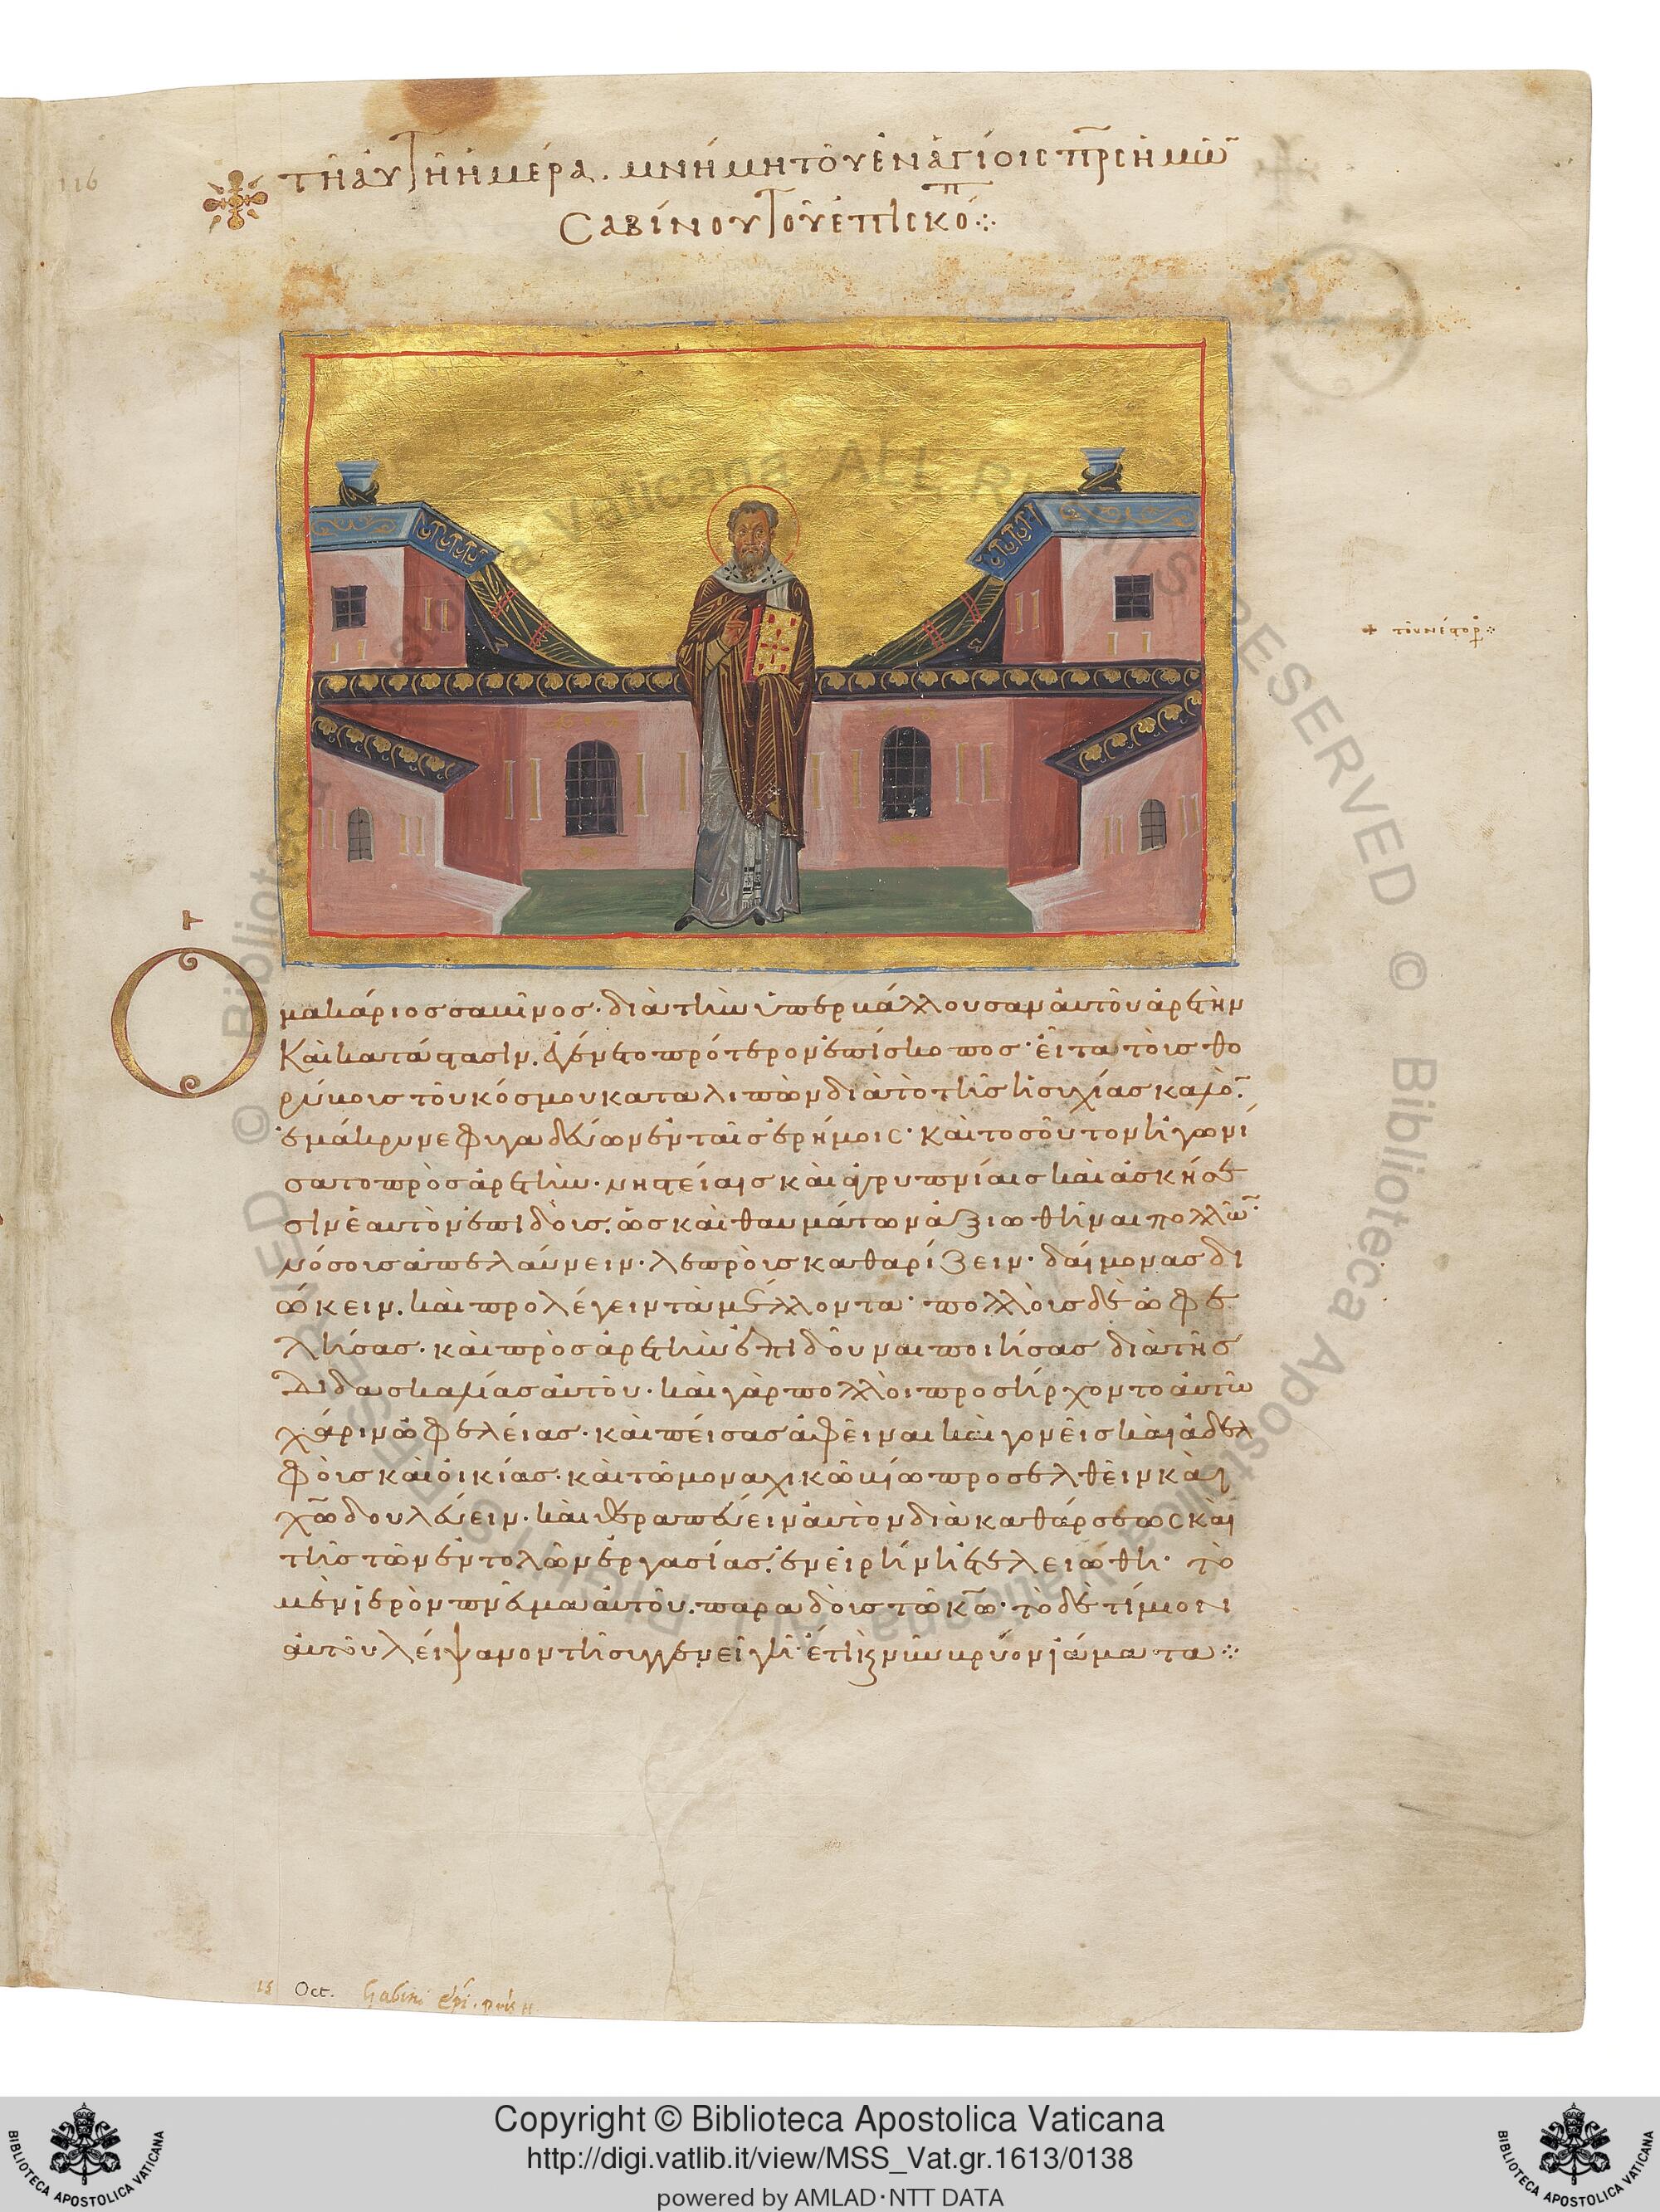 116
τῇ αὐτῇ ἡμέρα. μνήμη τοῦ ἐν ἁγίοις πρς ἡμῶ
Σαβίνου τοῦ ἐπισκόπ
+ τοῦ νέφορ
ιε
Ὁ μακάριος σαβῖνος· διὰ τὴν ὑπερβάλλουσαν αὐτοῦ ἀρετὴν
καὶ κατάστασιν. ἐγένετο πρότερον ἐπίσκοπος· εἶτα τοὺς θο
ρύβους τοῦ κόσμου καταλιπὼν διὰ τὸ τῆς ἡσυχίας καλὸ
ἐμάκρυνε φυγαδεύων ἐν ταῖς ἐρήμοις· καὶ τοσοῦτον ἠγωνί
σατο πρὸς ἀρετὴν· νηστείαις καὶ ἀγρυπνίαις καὶ ἀσκήσε
σιν ἑαυτὸν ἐπιδοὺς. ὡς καὶ θαυμάτων ἀξιωθῆναι πολλῶ
νόσους ἀπελαύνειν· λεπροὺς καθαρίζειν· δαίμονας δι
ώκειν. καὶ προλέγειν τὰ μέλλοντα· πολλοὺς δὲ ὠφε
λήσας· καὶ πρὸς ἀρετὴν ἐπιδοῦναι ποιήσας διὰ τῆς
διδασκαλίας αὐτοῦ· καὶ γὰρ πολλοὶ προσήρχοντο αὐτῶ
χάριν ὠφελείας· καὶ πείσας ἀφεῖναι καὶ γονεῖς καὶ ἀδελ
φοὺς καὶ οἰκίας· καὶ τῶ μοναχικῶ βίω προσελθεῖν καὶ
χῶ δουλεύειν· καὶ θεραπεύειν αὐτὸν διὰ καθάρσεως καὶ
τῆς τῶν ἐντολῶν ἐργασίας. ἐν εἰρήνη ἐτελειώθη· τὸ
μὲν ἱερὸν πνεῦμα αὐτοῦ. παραδοὺς τῶ κῶ· τὸ δὲ τίμιον
αὐτοῦ λείψανον τῆ συγγενεῖ γῆ· ἔτι καὶ νῦν βρύον ἰάματα
15 Oct. Sabini epi.
Copyright © Biblioteca Apostolica Vaticana
http://digi.vatlib.it/view/MSS_Vat.gr.1613/0138
powered by AMLAD·NTT DATA
BIBLIOTECA APOSTOLICA VATICANA
BIBLIOTECA APOSTOLICA VATICANA
© Biblioteca Apostolica Vaticana ALL RIGHTS RESERVED © Biblioteca Apostolica Vaticana ALL RIGHTS RESERVED